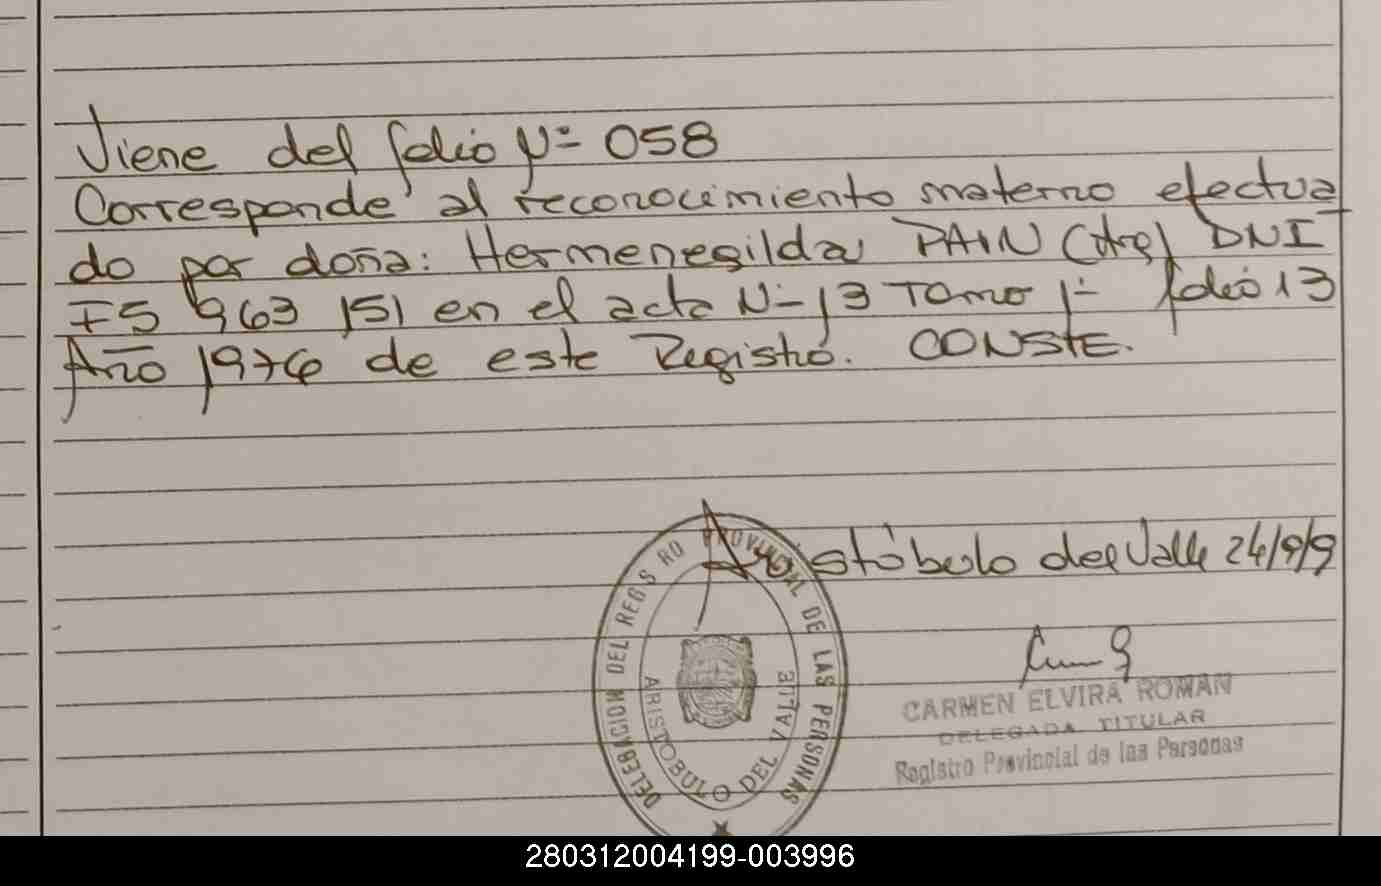 Viene del folio Nº 058
Corresponde al reconocimiento materno efectua
do por doña: Hermenegilda PAIN (Arg) DNI
F5 963 151 en el acta Nº 13 Tomo 1º folio 13
Año 1976 de este Registro. CONSTE.
Aristóbulo del Valle 24/9/9
CARMEN ELVIRA ROMAN
DELEGADA TITULAR
Registro Provincial de las Personas
DELEGACION DEL REGISTRO PROVINCIAL DE LAS PERSONAS
ARISTOBULO DEL VALLE
280312004199-003996